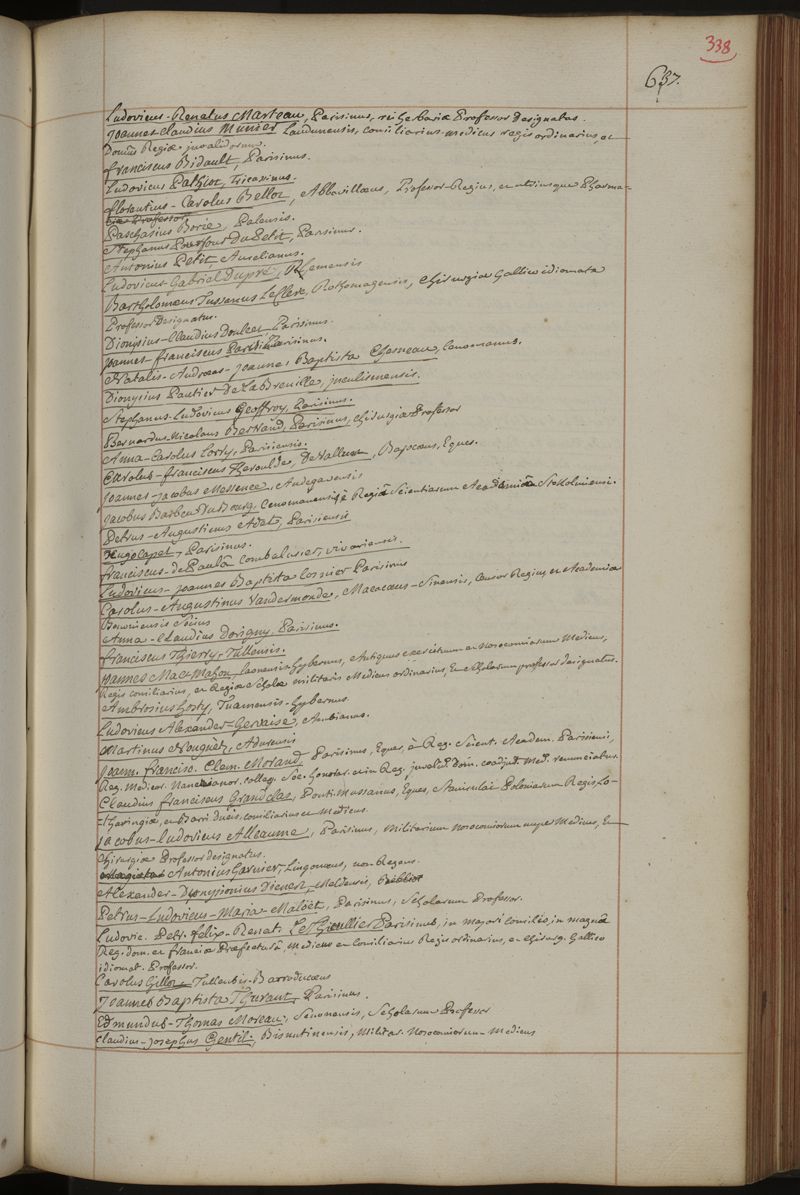 338
637.
Ludovicus-Renatus Marteau, Parisinus, rei herbariæ Professor Designatus.
Joannes Claudius Munier Laudunensis, consiliarius medicus regis ordinarius, et
Domûs Regiæ invalidorum.
Franciscus Bidault, Parisinus.
Ludovicus Pathiot, Tricassinus.
Florentius-Carolus Bellot, Abbavillæus, Professor Regius, et utriusque Pharma-
ciæ Professor.
Paschasius Borie, Palensis.
Stephanus Pourfour Du Petit, Parisinus.
Antonius Petit Aurelianus.
Ludovicus Gabriel Dupré, Rhemensis
Bartholomæus Tussanus Leclerc, Rothomagensis, Chirurgiæ Gallico idiomate
Professor Designatus.
Dionysius-Claudius Doulcet Parisinus.
Joannes-Franciscus Parisinus.
Natalis-Andreas-Joannes Baptista Chesneau, Cenomanus.
Dionysius Pautier De La Breuille, inculismensis.
Stephanus-Ludovicus Geoffroy, Parisinus.
Bernardus-Nicolaus Bertrand, Parisinus, chirurgiæ Professor
Anna-Carolus Lorry, Parisiensis.
Carolus-Franciscus Theroulde, De Valleun, Bajocæus, Eques.
Joannes-Jacobus Messence, Andegavensis
Jacobus Barbeu Du Bourg, Cenomanensis, è Regiâ Scientiarum Academiâ Stokolmiensi.
Petrus-Augustinus Adet, Parisiensis
Hugo Capet, Parisinus.
Franciscus-de Paulâ Combalusier, vivariensis.
Ludovicus-Joannes Baptista Cosnier Parisinus
Carolus-Augustinus Vandermonde, Macacæus-Sinensis, Censor Regius, et Academiæ
Bononiensis Socius
Anna-Claudius Dorigny, Parisinus.
Franciscus Thierry, Tullensis.
Joannes Mac-Mahon, Laonensis-hybernus, Antiquus exercituum et nosocomiorum Medicus,
Regis consiliarius, et Regiæ Scholæ militaris Medicus ordinarius, Et Scholarum professor designatus.
Ambrosius hosty, Tuamensis-hybernus
Ludovicus Alexander Gervaise, Ambianus.
Martinus Nouguèz, Adurensis
Joann. Francisc. Clem. Morand, Parisinus, Eques, à Reg. Scient. Academ. Parisiensi,
Reg. Medicor. Nanceianor. colleg. Soc. honorar. et in Reg. invalid. Dom. coadjut. Med. renunciatus.
Claudius Franciscus Grandclas, Ponti-mussanus, Eques, Stanislai Poloniarum Regis, Lo-
tharingiæ, et Barri ducis, consiliarius et Medicus.
Jacobus-Ludovicus Alleaume, Parisinus, militarium nosocomiorum nuper Medicus, Et
Chirurgiæ Professor designatus.
Antonius Garnier, Lingonæus, non Regens.
Alexander-Dionysionius Dienert, Meldensis, Biblioth
Petrus-Ludovicus-Maria Maloët, Parisinus, Scholarum Professor.
Ludovic. Petr. Felix-Renat. Le Thieullier Parisinus, in majori consilio, in magnâ
Reg. dom. et Franciæ Præfecturâ, Medicus et Consiliarius Regis ordinarius, et chirurg. Gallico
idiomat. Professor.
Carolus Gillot Tullensis-Barroducæus
Joannes Baptista Thurant, Parisinus.
Edmundus-Thomas Moreau, Senonensis, Scholarum Professor
Claudius-Josephus Gentil, Bisuntinensis, Militar. nosocomiorum Medicus